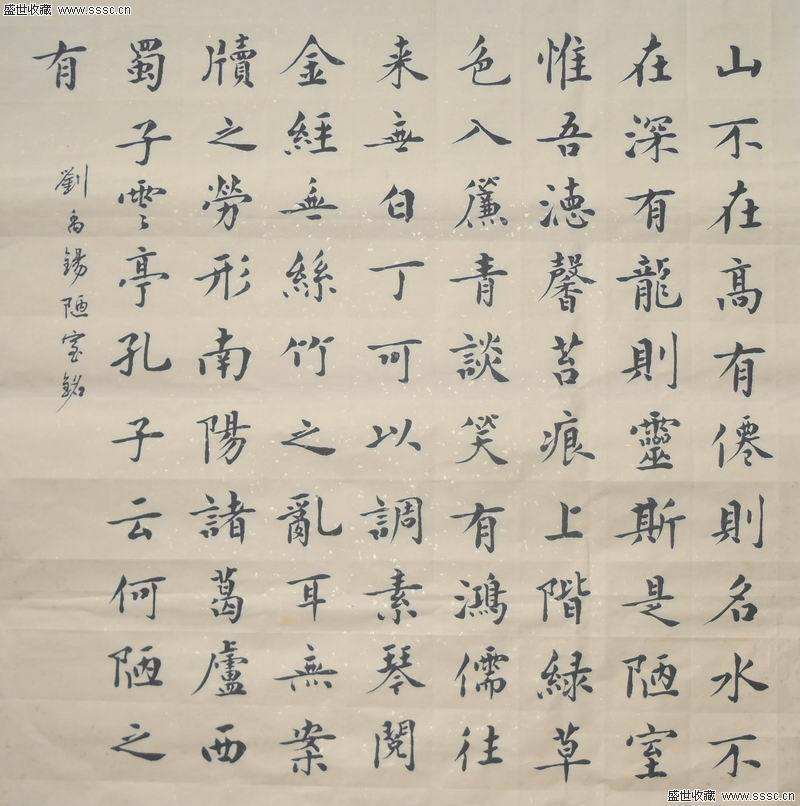 盛世收藏 www.sssc.cn
山不在高有僊則名水不
在深有龍則靈斯是陋室
惟吾徳馨苔痕上階緑草
色入簾青談笑有鴻儒往
来無白丁可以調素琴閱
金經無絲竹之亂耳無案
牘之勞形南陽諸葛廬西
蜀子雲亭孔子云何陋之
有
劉禹錫陋室銘
盛世收藏 www.sssc.cn